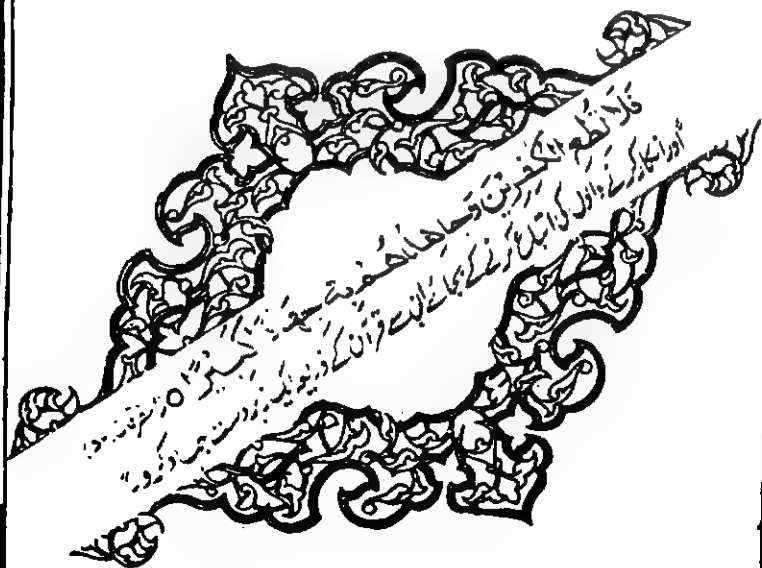 فَلَا تُطِعِ الْكٰفِرِيْنَ وَجَاهِدْهُمْ بِهٖ جِهَادًا كَبِيْرًا ○ (الفرقان
"اور انکار کرنے والوں کی اتباع کرنے کے بجائے ان سے قرآن کے ذریعہ ایک زبردست جہاد کرو۔"